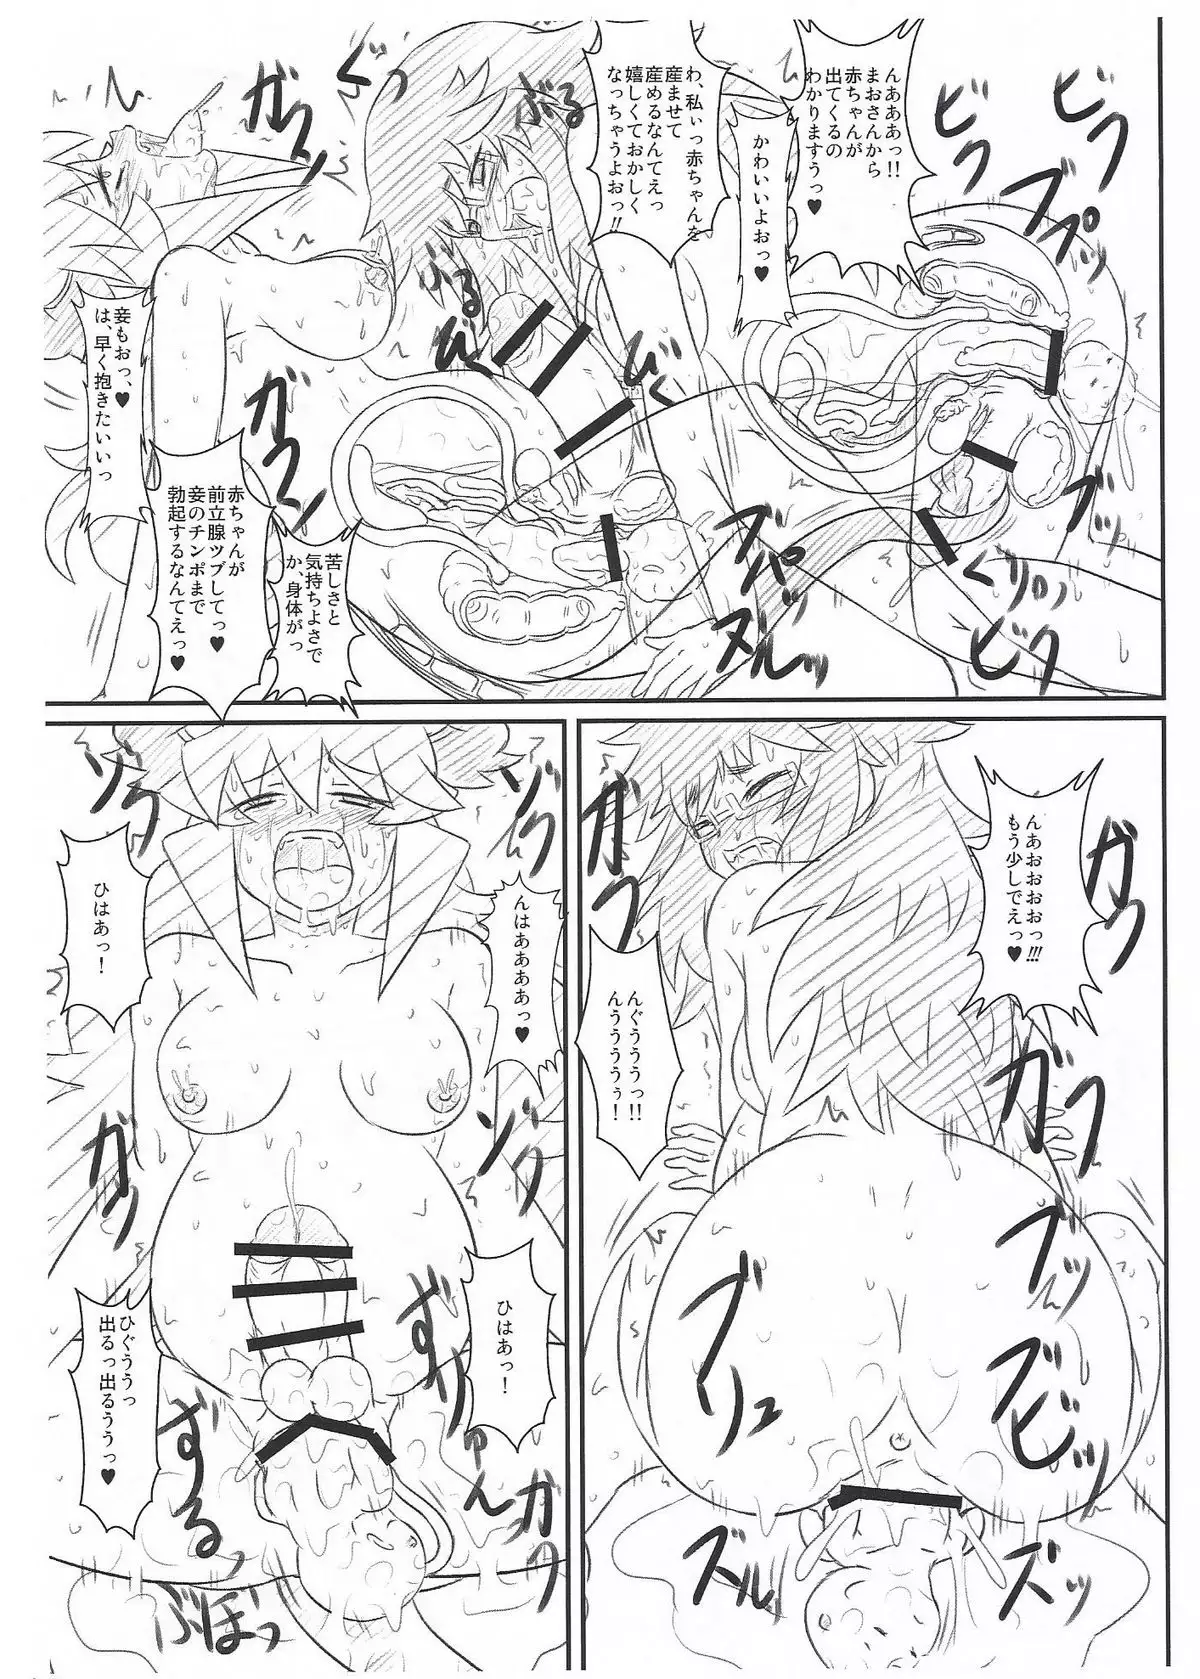 んあああっ!!
まおさんから
赤ちゃんが
出てくるの
わかりますうっ♥
かわいいよおっ♥
わ、私ぃっ赤ちゃんを
産ませて
産めるなんてえっ
嬉しくておかしく
なっちゃうよおっ!!
妾もおっ、♥
は、早く抱きたいいっ
苦しさと
気持ちよさで
か、身体がっ
赤ちゃんが
前立腺ツブしてっ♥
妾のチンポまで
勃起するなんてえっ♥
ビクッ
ビクッ
ブプッ
ブプッ
ぐっ
ぶる
ぶるっ
びく
びくっ
ガクッ
ガクンッ
ズパァッ
ヌルッ
ブピッ
ぐりっ
ビクッ
んあおおおおっ!!!
もう少しでえっ♥
んぐうううっ!!
んううううぅ!
ガクッ
ガクッ
ガクッ
ブッ
ブリュ
ズビッ
ズルッ
ズッ
んはああああっ♥
ひはあっ!
ひはあっ!
ひぐううっ
出るっ出るううっ♥
ゾクッ
ゾクッ
ゾクッ
ガクッ
ガクガク
ずりゅん
ずるっ
ぶぼっ